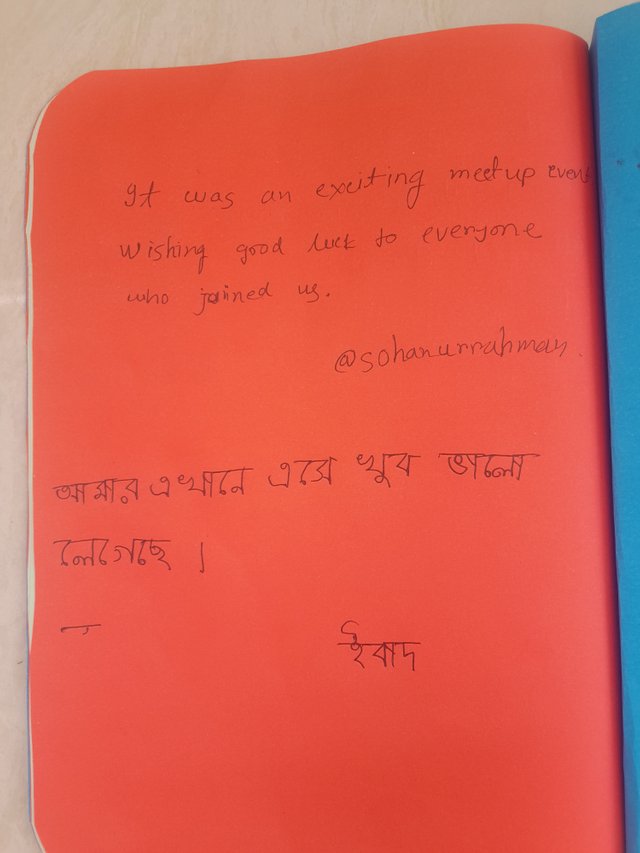 It was an exciting meetup event
Wishing good luck to everyone
who joined us.
@sohanurrahman.
আমার এখানে এসে খুব ভালো
লেগেছে।
ইবাদ